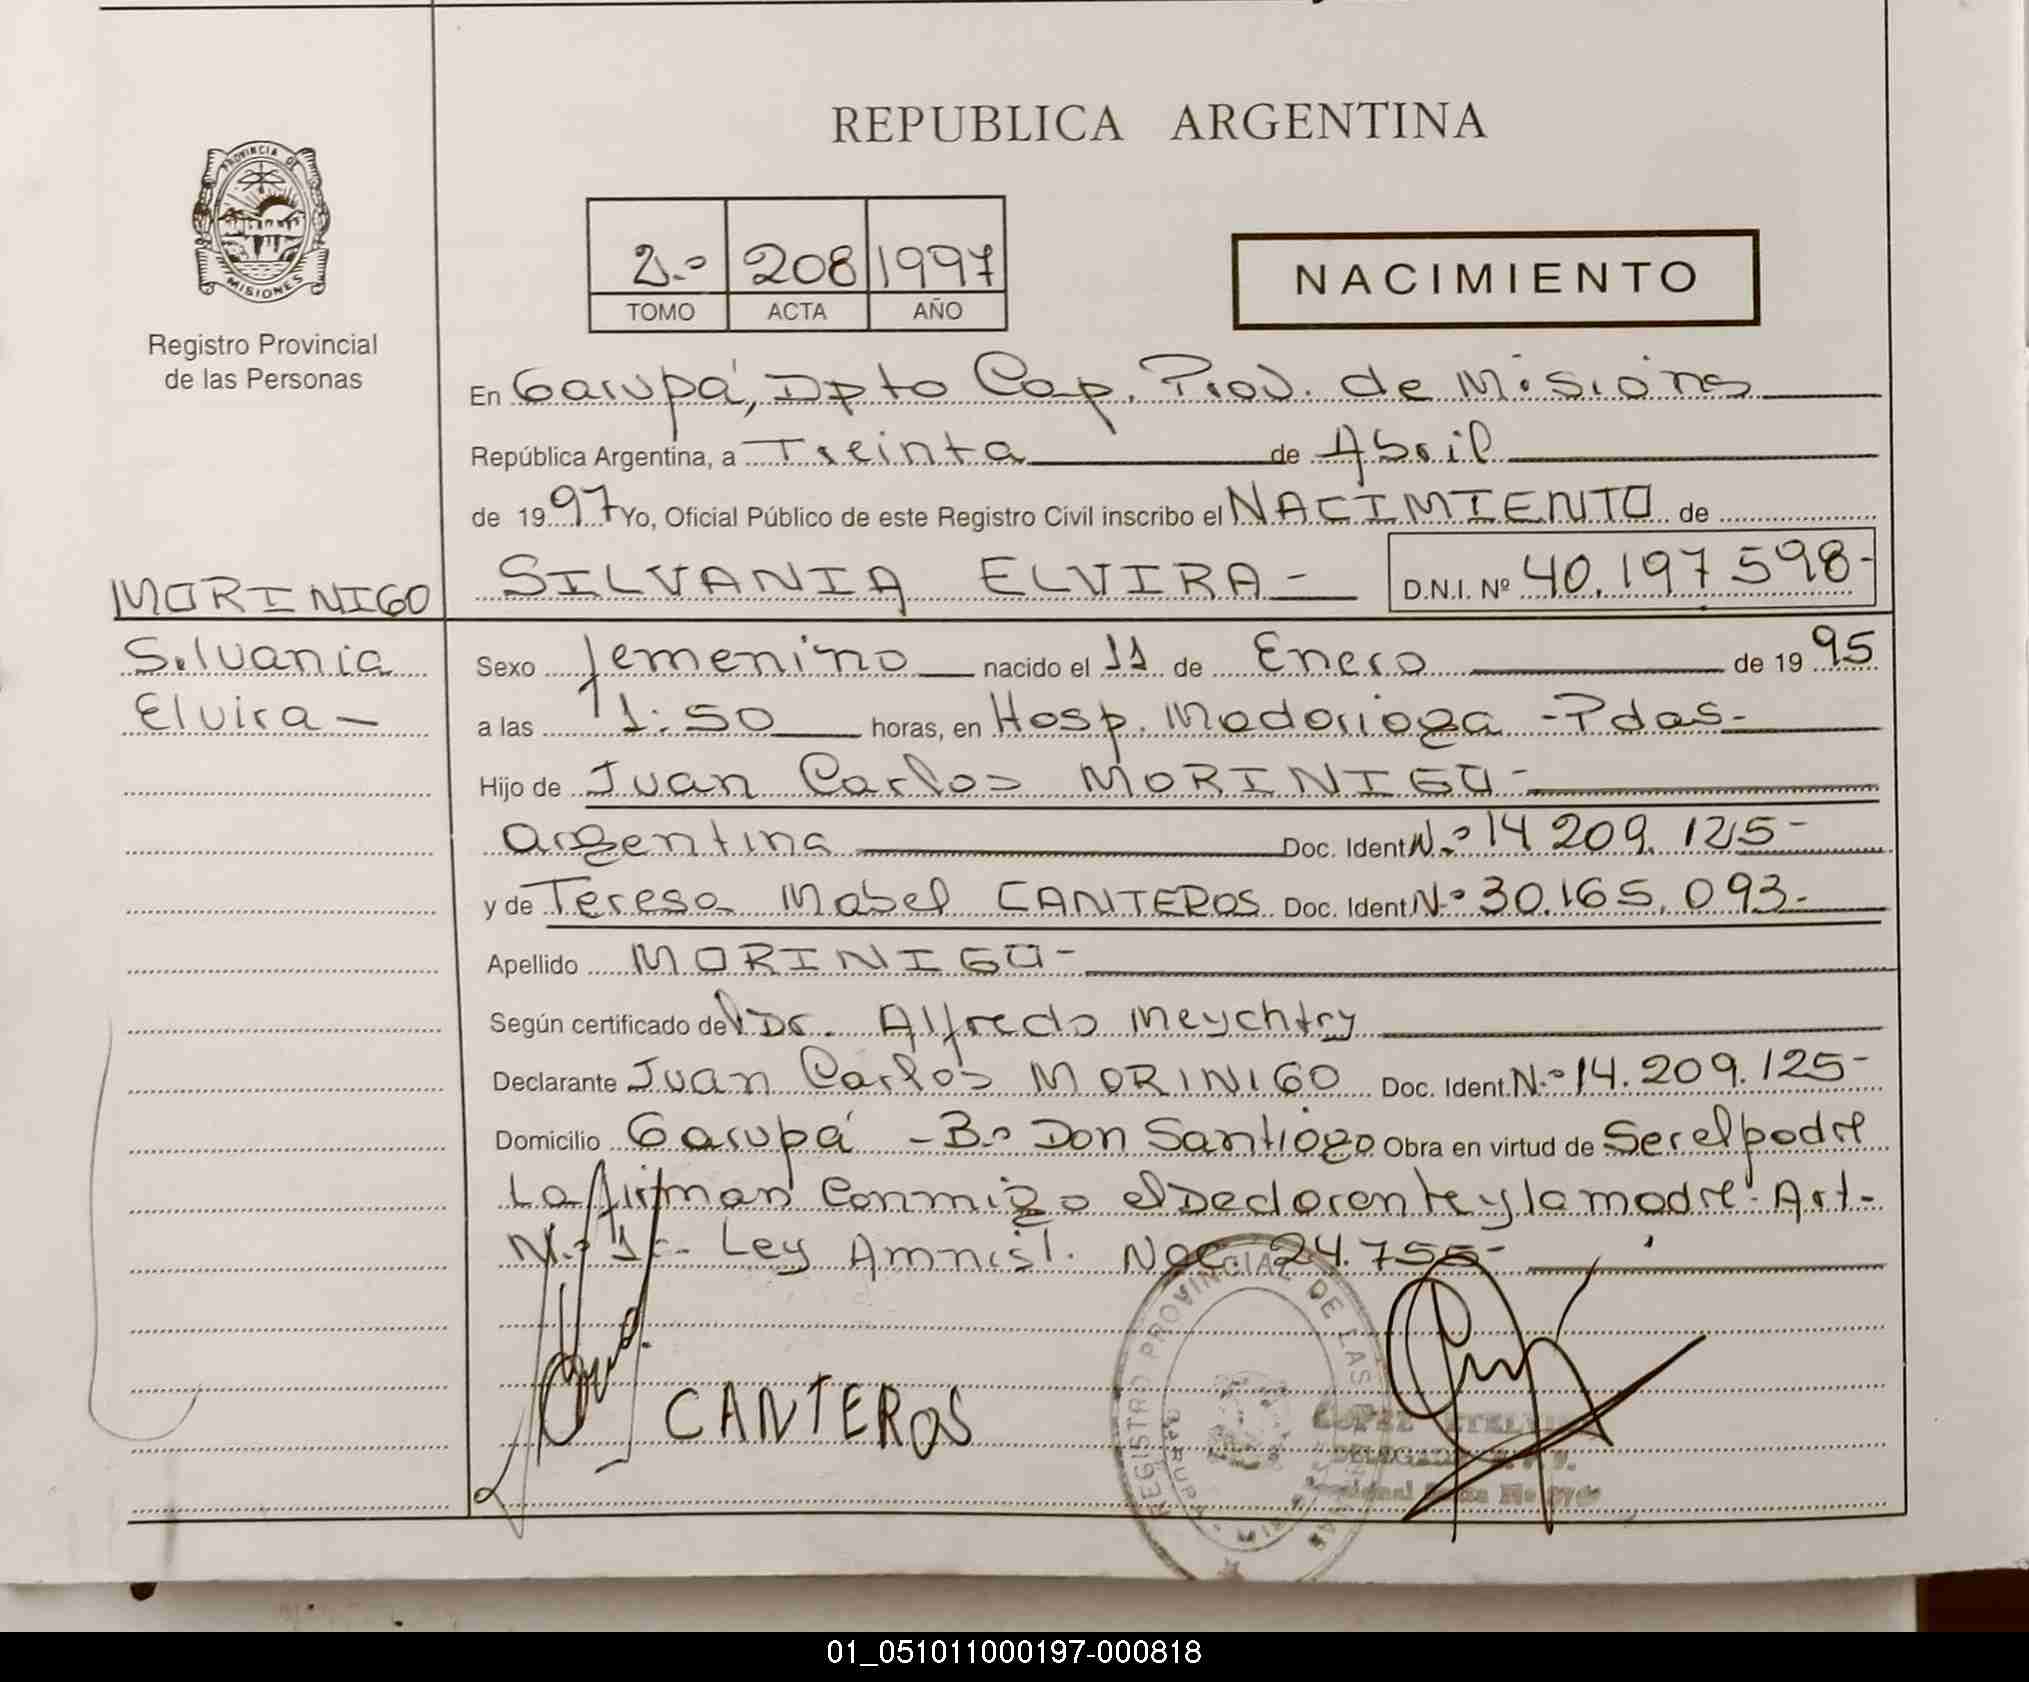 REPUBLICA ARGENTINA
PROVINCIA DE
MISIONES
Registro Provincial
de las Personas
2.º 208 1997
TOMO ACTA AÑO
NACIMIENTO
En Garupá, Dpto Cap. Prov. de Misiones
República Argentina, a Treinta de Abril
de 1997 Yo, Oficial Público de este Registro Civil inscribo el NACIMIENTO de
SILVANIA ELVIRA - D.N.I. Nº 40.197.598-
MORINIGO
Silvania
Elvira -
Sexo femenino nacido el 11 de Enero de 1995
a las 1:50 horas, en Hosp. Madariaga - Pdas -
Hijo de Juan Carlos MORINIGO -
argentina Doc. Ident N.º 14 209. 125 -
y de Teresa Mabel CANTEROS Doc. Ident N.º 30.165.093.-
Apellido MORINIGO -
Según certificado del Dr. Alfredo Meychtry
Declarante Juan Carlos MORINIGO Doc. Ident. N.º 14.209.125-
Domicilio Garupá - B.º Don Santiago Obra en virtud de Ser el padre
La firman conmigo el Declarante y la madre. Art.
N.º 1.- Ley Amnist. Nac. 24.755-
CANTEROS
REGISTRO PROVINCIAL DE LAS
GARUPA
01_051011000197-000818